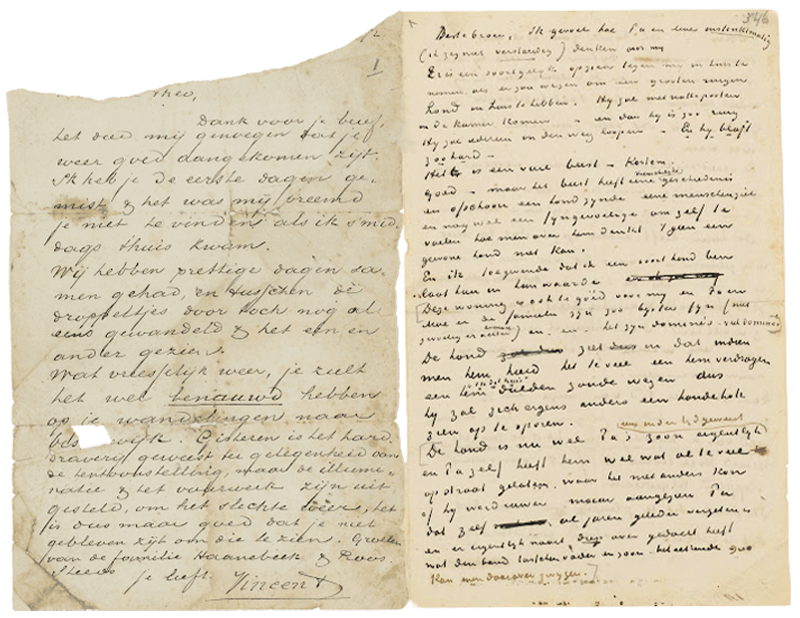 1
Theo,
Dank voor je brief,
het deed mij genoegen dat je
weer goed aangekomen zijt.
Ik heb je de eerste dagen ge-
mist & het was mij vreemd
je niet te vinden als ik smid-
dags thuis kwam.
Wij hebben prettige dagen sa-
men gehad, en tusschen de
droppeltjes door toch nog al
eens gewandeld & het een en
ander gezien.
Wat vreesselijk weer, je zult
het wel benauwd hebben
op je wandelingen naar
wijk. Gisteren is het hard-
draverij geweest ter gelegenheid van
de tentoonstelling, maar de illumi-
natie & het vuurwerk zijn uit
gesteld, om het slechte weer, het
is dus maar goed dat je niet
gebleven zijt om die te zien. Groeten
van de familie Haanebeek & Roos.
Steeds
je liefh. Vincent
346
Beste broer, Ik gevoel hoe Pa en Moe instinktmatig
(ik zeg niet verstandig) denken over mij
Er is een soortgelijk opzien tegen mij in huis te
nemen als er zou wezen om een grooten ruigen
hond in huis te hebben. Hij zal met natte pooten
in de kamer komen – en dan hij is zoo ruig
Hij zal iedereen in den weg loopen. En hij blaft
zoo hard –
Het is een vuil beest – Kortom.
Goed – maar het beest heeft eene menschelijke geschiedenis
en ofschoon een hond zijnde eene menschenziel
en nog wel een fijngevoelige om zelf te
voelen hoe men over hem denkt 't geen een
gewone hond niet kan.
En ik toegevende dat ik een soort hond ben
laat hun in hun waarde
Deze woning is ook te goed voor mij en Pa en
Moe en de familie zijn zoo bijster fijn (niet
gevoelig echter) en. en. het zijn dominés – veel dominés
De hond ziet in dat indien
men hem hield het te veel een hem verdragen
een hem dulden zoude wezen "in dit huis" dus
hij zal zich ergens anders een hondehok
zien op te sporen.
De hond is nu wel Pa's zoon eigentlijk
en Pa zelf heeft hem wel wat al te veel
op straat gelaten waar hij niet anders kon
of hij werd ruwer maar aangezien Pa
dat zelf al jaren geleden vergeten is
en er eigentlijk nooit diep over gedacht heeft
wat den band tusschen vader en zoon beteekende zoo
kan men daarover zwijgen.